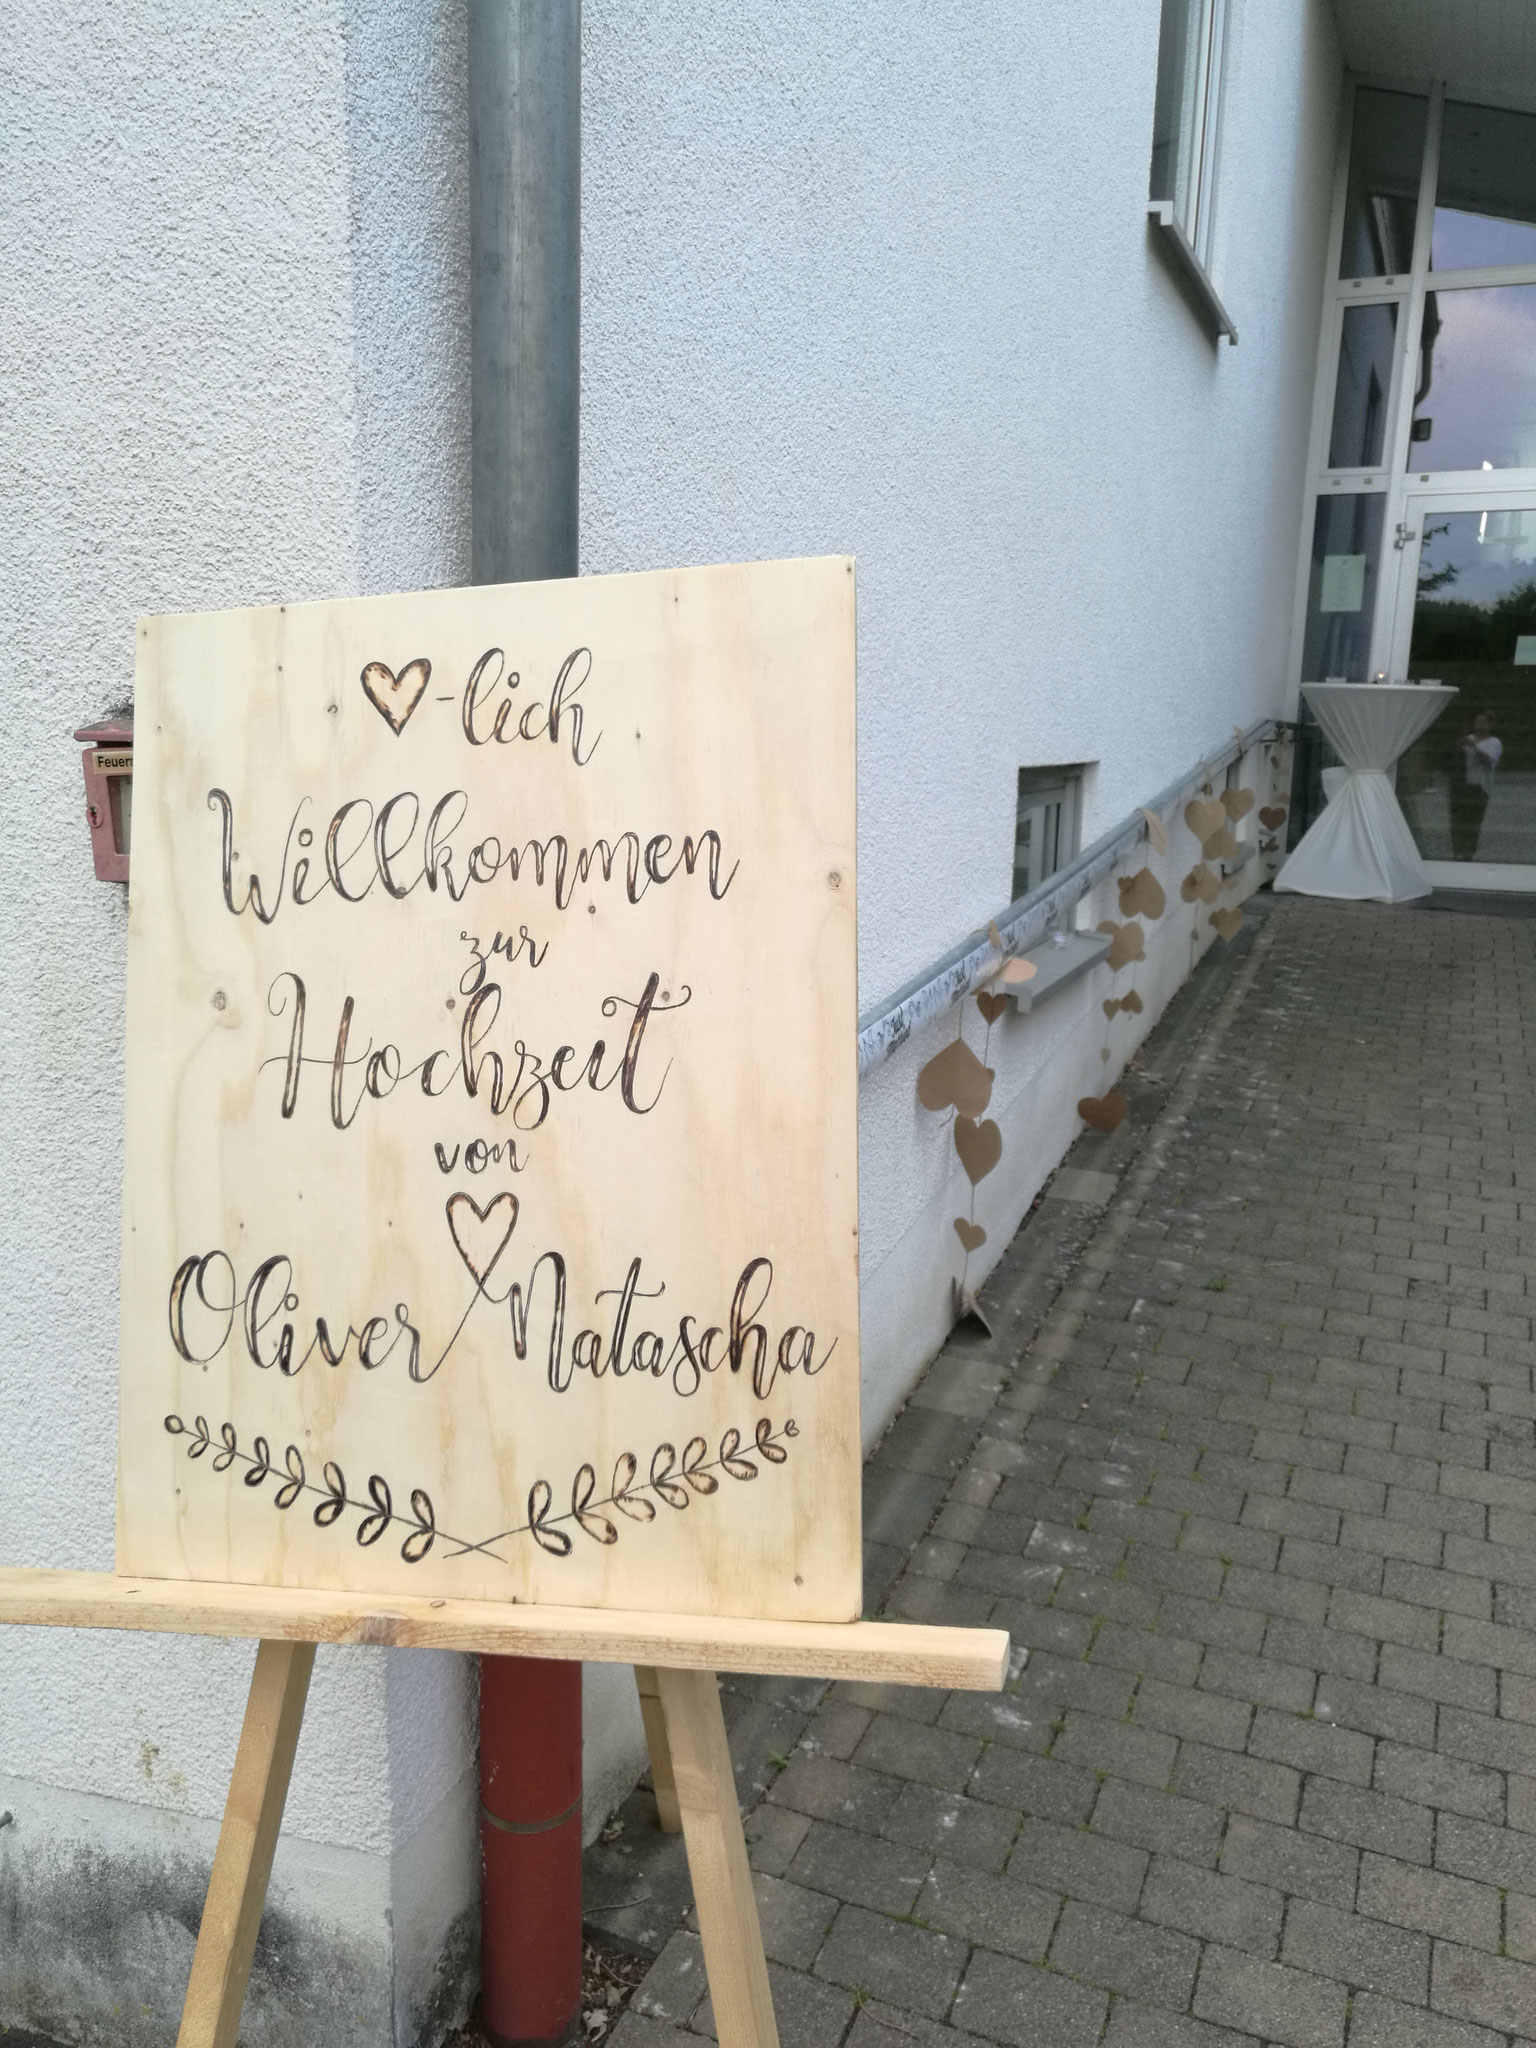 ♥-lich
Willkommen
zur
Hochzeit
von
Oliver Natascha
Feuer